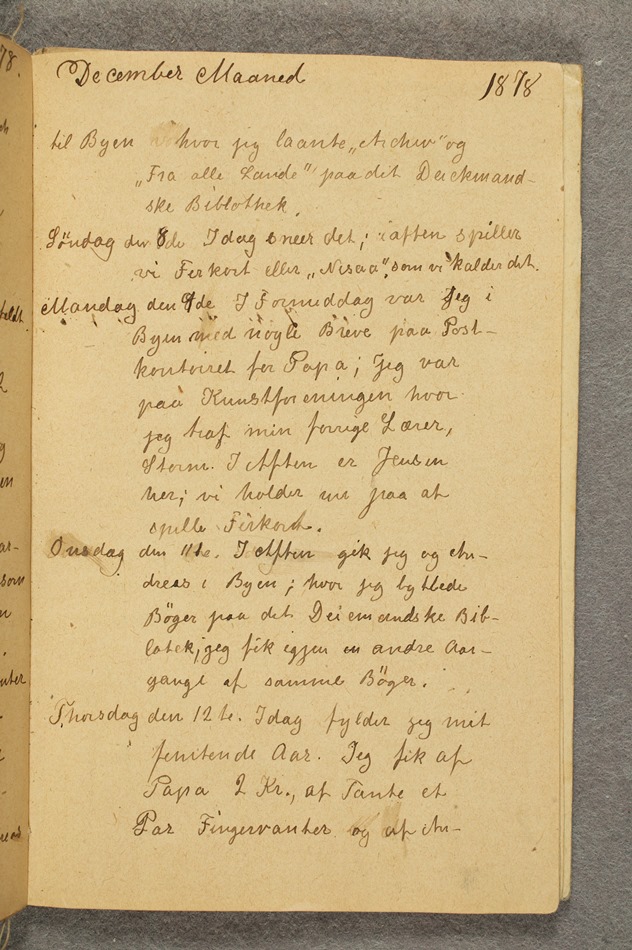 December Maaned 1878
til Byen hvor jeg laante „Archiv" og
„Fra alle Lande" paa det Deickmand-
ske Biblothek.
Söndag den 8de Idag sneer det; iaften spiller
vi Firkort eller „Nisaa", som vi kalder det.
Mandag den 9de I Formiddag var Jeg i
Byen med nogle Breve paa Post-
kontoiret for Papa; Jeg var
paa Kunstforeningen hvor
jeg traf min forrige Lærer,
Storm. I Aften er Jensen
her; vi holder nu paa at
spille Firkort.
Onsdag den 11te. I Aften gik jeg og An-
dreas i Byen; hvor jeg byttede
Böger paa det Deiemandske Bib-
lotek; jeg fik igjen en andre Aar-
gange af samme Böger.
Thorsdag den 12te. Idag fylder jeg mit
femtende Aar. Jeg fik af
Papa 2 Kr., af Tante et
Par Fingervanter og af An-